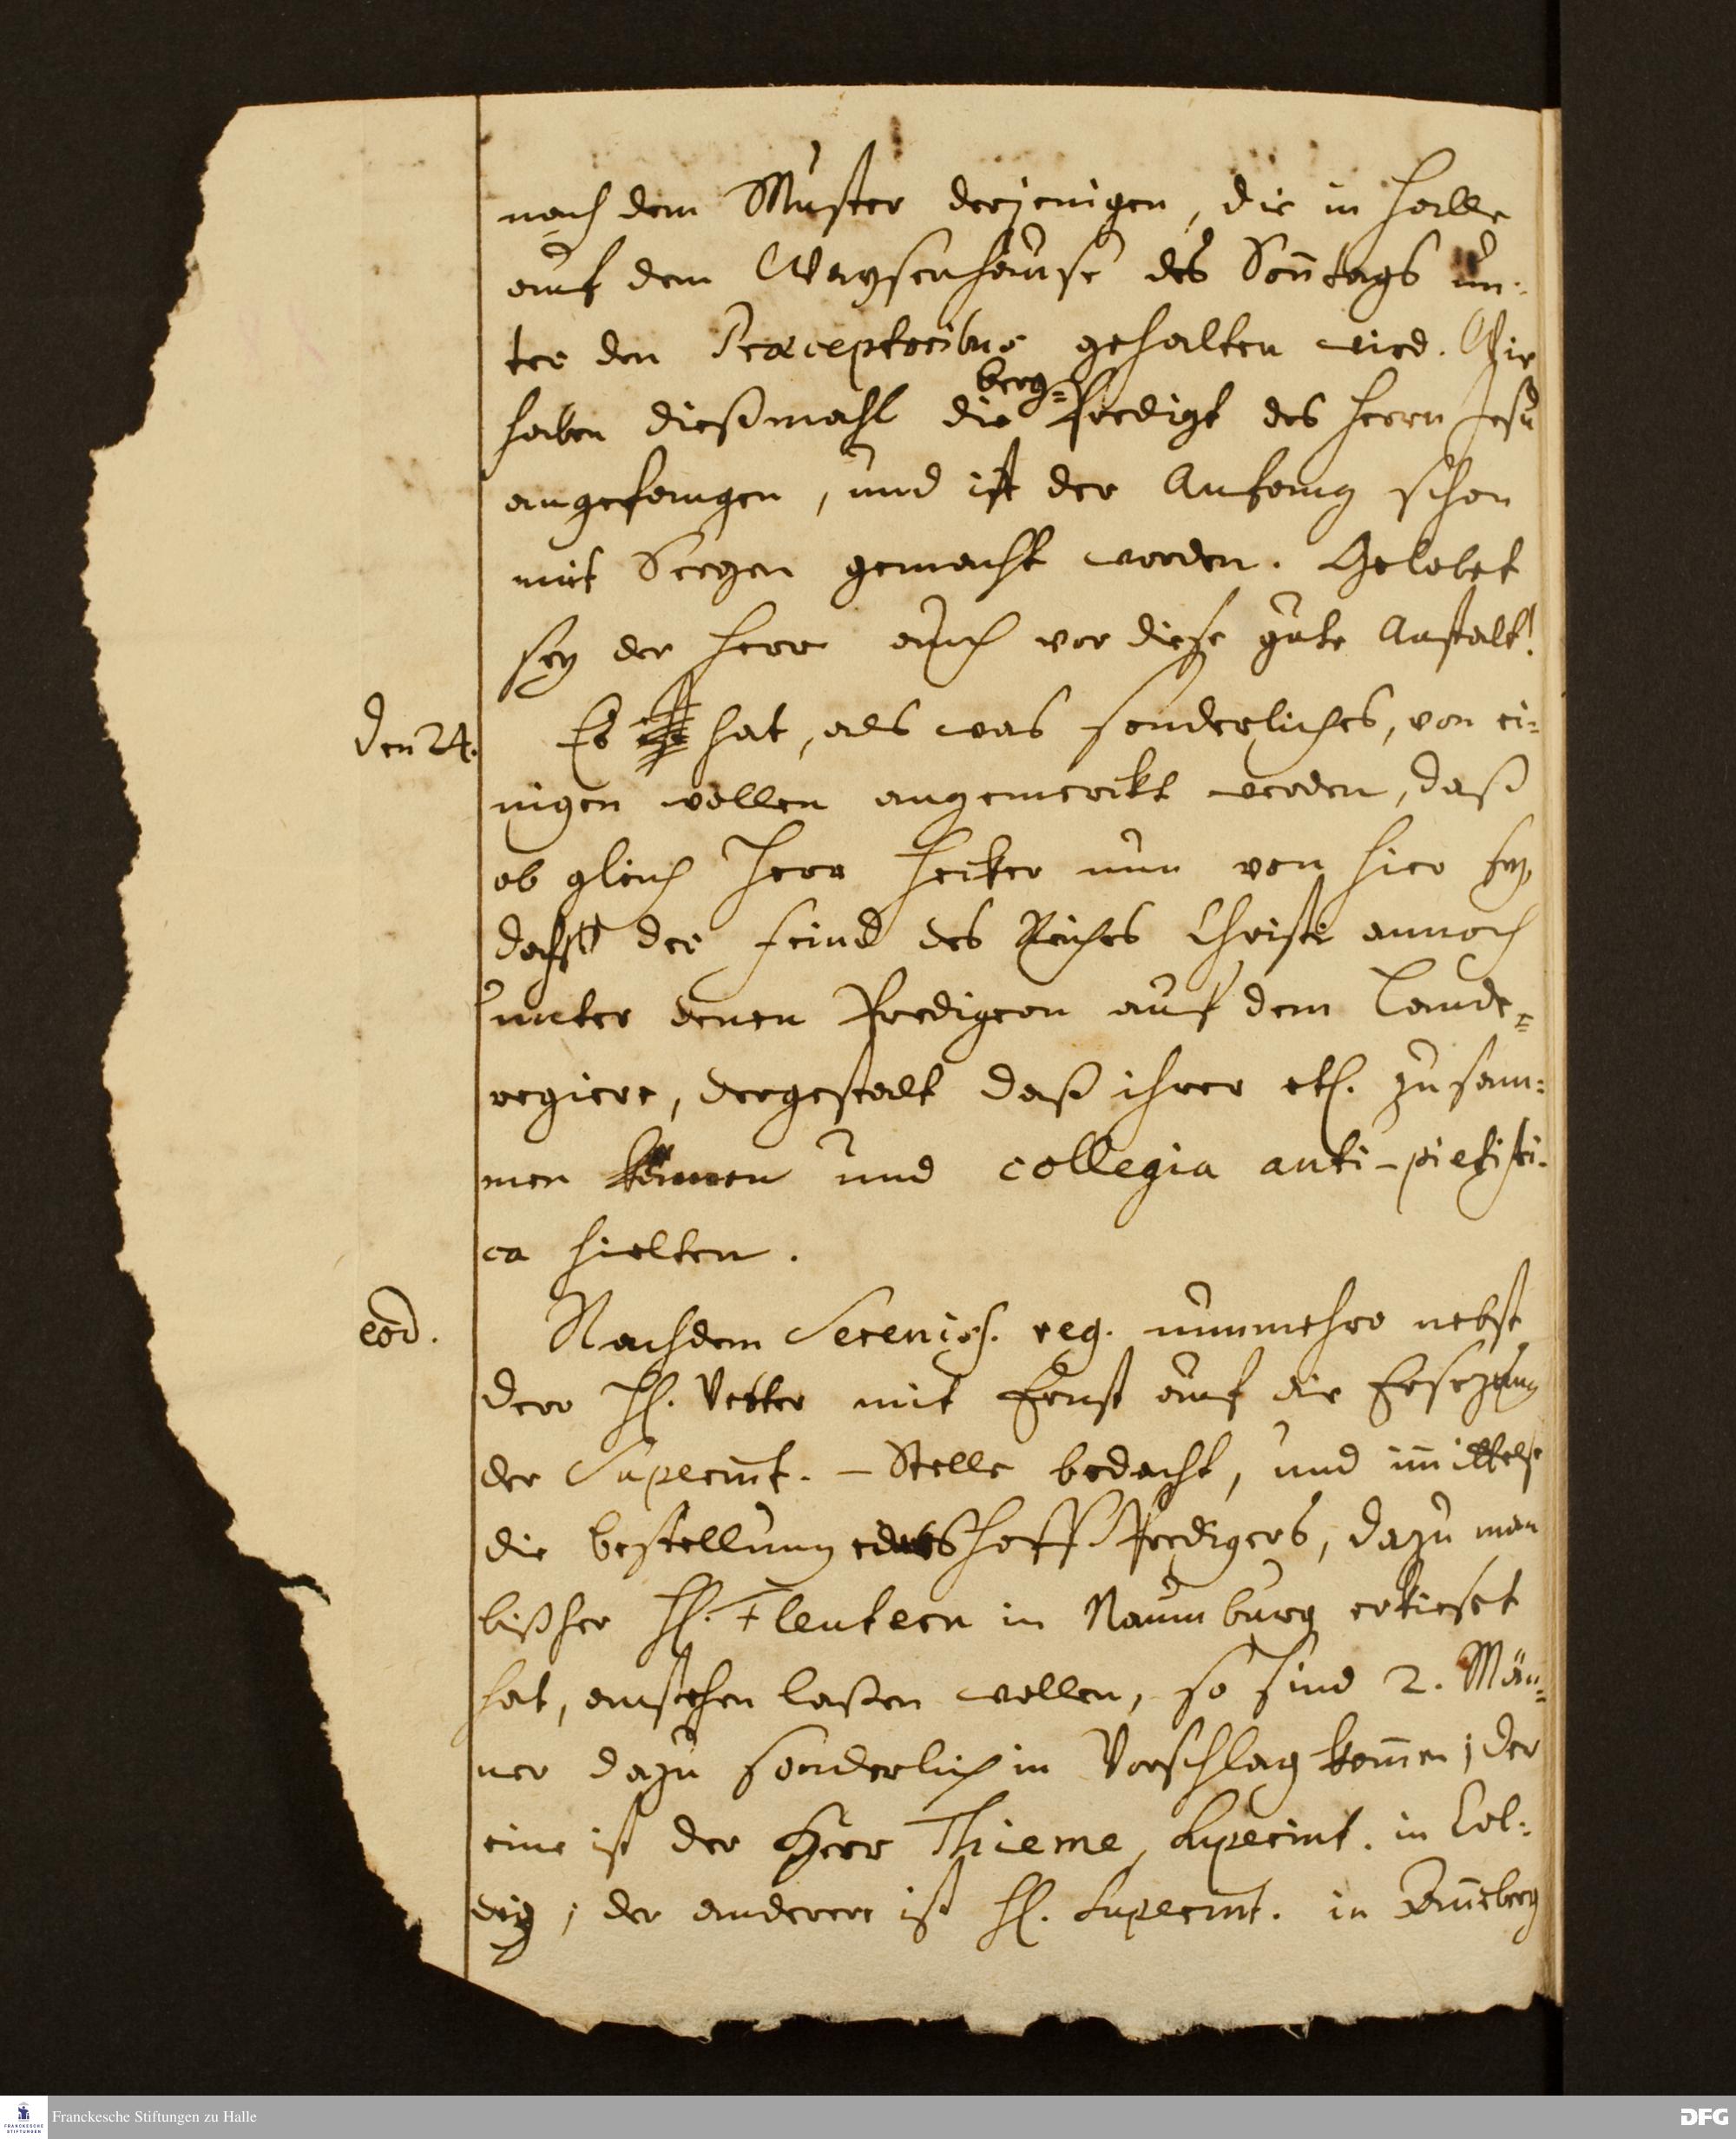 nach dem Muster derjenigen, die in Halle
auf dem Waysenhause des Sontags un-
ter den Praeceptoribus gehalten wird. Wir
haben dießmahl die berg-Predigt des Herrn Jesu
angefangen, und ist der Anfang schon
mit Seegen gemacht worden. Gelobet
sey der Herr auch vor diese gute Anstalt!
den 24. Es hat, als was sonderliches, von ei-
nigen wollen angemerckt werden, daß
ob gleich Herr Hecker nun von hier sey,
doch der Feind des Reiches Christi annoch
unter denen Predigern auf dem Lande
regiere, dergestalt daß ihrer etl. zusam-
men kämen und collegia anti-pietisti-
ca hielten.
eod. Nachdem Sereniss. reg. nunmehro nebst
dero H. Vetter mit Ernst auf die Ersezung
der Superint.-Stelle bedacht, und imittelst
die bestellung des Hoff-Predigers, dazu man
bißher H. Fleutern in Naumburg erkieset
hat, anstehen laßen wollen, so sind 2. Män-
ner dazu sonderlich in Vorschlag komen; der
eine ist der Herr Thieme, Superint. in Col-
diz; der anderere ist H. Superint. in
Franckesche Stiftungen zu Halle
FRANCKESCHE STIFTUNGEN
DFG